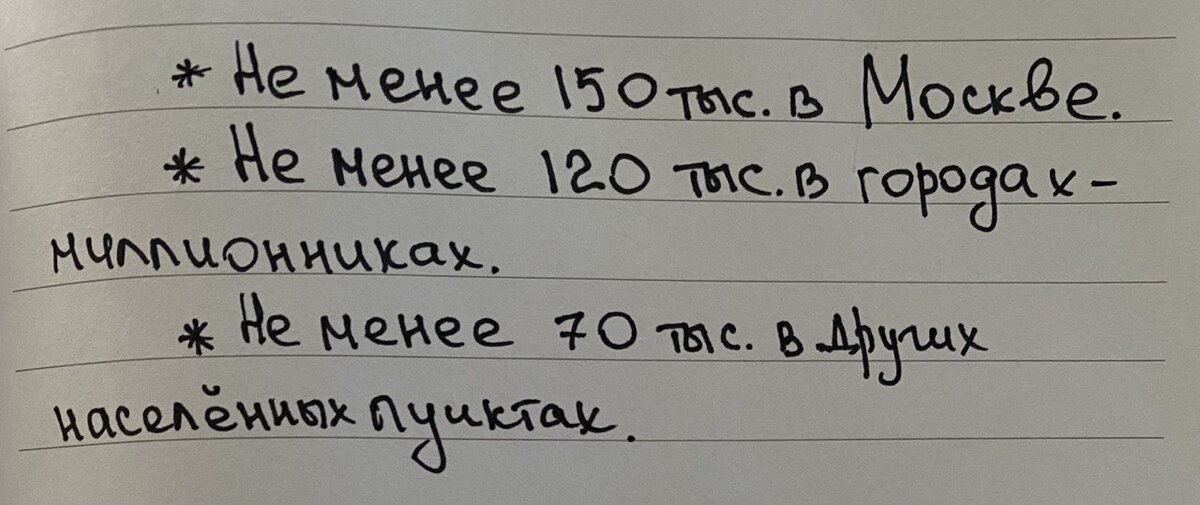 * Не менее 150 тыс. в Москве.
* Не менее 120 тыс. в городах-
миллионниках.
* Не менее 70 тыс. в других
населённых пунктах.